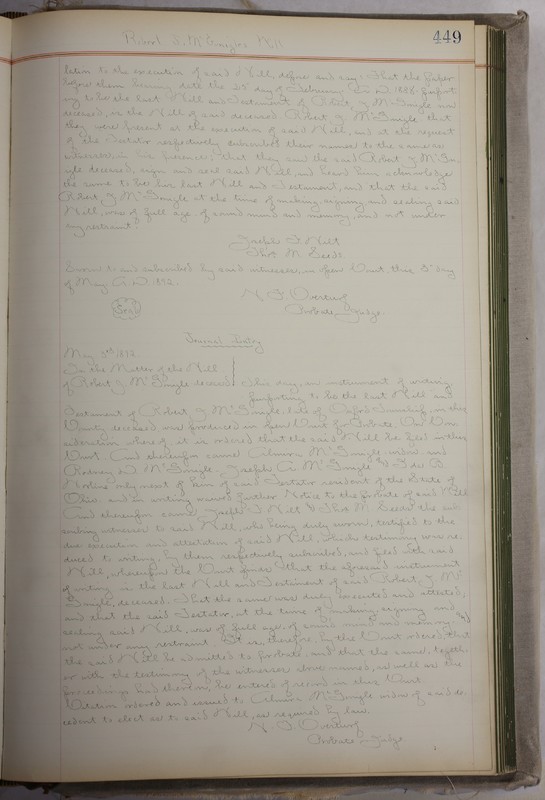 449
Robert J. McGonigle's Will
lation to the execution of said Will, depose and say: That the paper
before them bearing date the 23d day of February A.D. 1888, purport-
ing to be the last Will and Testament of Robert J. McGonigle now
deceased, is the Will of said deceased Robert J. McGonigle that
they were present at the execution of said Will, and at the request
of the Testator respectively subscribed their names to the same as
witnesses in his presence; that they saw the said Robert J. McGon-
igle deceased, sign and seal said Will, and heard him acknowledge
the same to be his last Will and Testament, and that the said
Robert J. McGonigle at the time of making, signing, and sealing said
Will, was of full age, of sound mind and memory, and not under
any restraint.
Joseph T. Nilt
Thos. M. Seeds
Sworn to and subscribed by said witnesses, in open Court, this 3d day
of May A.D. 1892.
N. F. Overturf
Probate Judge.
Seal
Journal Entry
May 3rd 1892
In the Matter of the Will
of Robert J. McGonigle deceased } This day, an instrument of writing
purporting to be the last Will and
Testament of Robert J. McGonigle, late of Oxford Township, in this
County deceased, was produced in open Court for Probate. On Con-
sideration whereof, it is ordered that the said Will be filed in this
Court. And thereupon came McGonigle widow and
McGonigle, Joseph A. McGonigle & B.
only next of kin of said Testator resident of the State of
Ohio, and in writing waived further Notice to the probate of said Will
And thereupon came Joseph T. Nilt & Thos. M. Seeds the sub-
scribing witnesses to said Will, who being duly sworn, testified to the
due execution and attestation of said Will, which testimony was re-
duced to writing, by them respectively subscribed, and filed with said
Will, whereupon the Court finds that the aforesaid instrument
of writing is the last Will and Testament of said Robert J. Mc
Gonigle, deceased. That the same was duly executed and attested,
and that the said Testator, at the time of making, signing and
sealing said Will, was of full age, of sound mind and memory, and
not under any restraint. It is, therefore, by the Court ordered, that
the said Will be admitted to probate, and that the same, togeth-
er with the testimony of the witnesses above named, as well as the
proceedings had thereon, be entered of record in this Court.
Citation ordered and issued to McGonigle widow of said de-
cedent to elect as to said Will, as required by law.
N. F. Overturf
Probate Judge